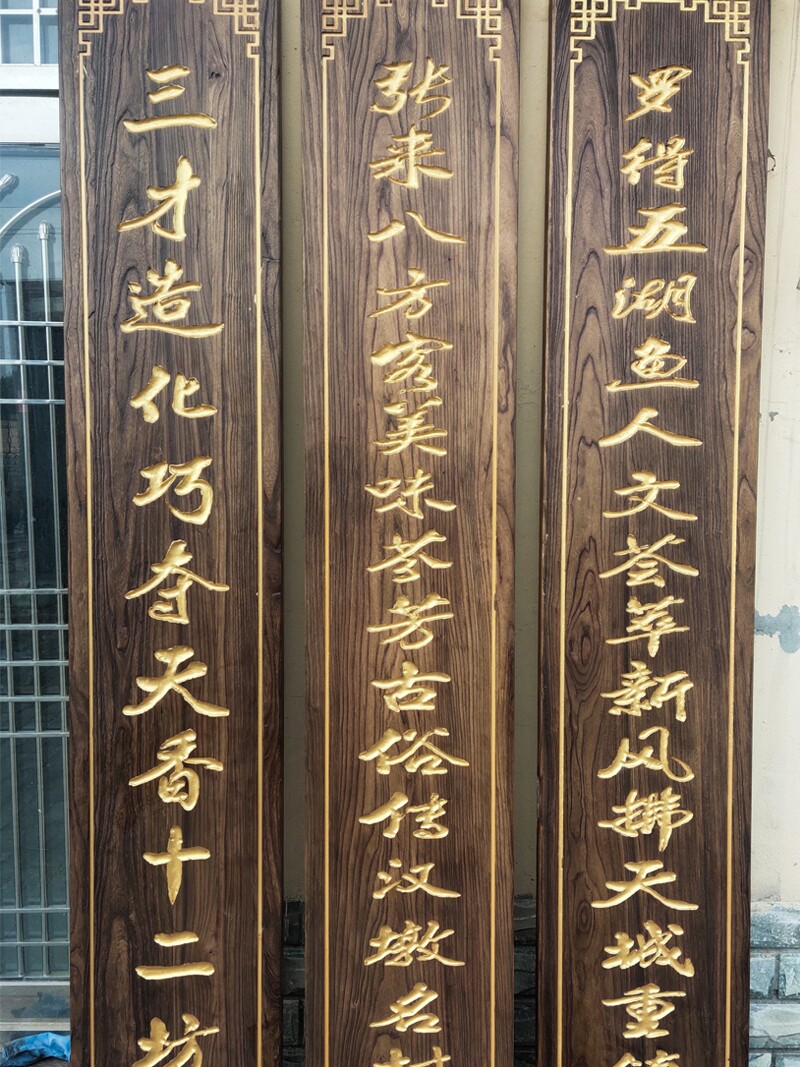 罗得五湖鱼人文荟萃新风拂天城重
张来八方客美味芬芳古俗传汉墩名村
三才造化巧夺天香十二坊